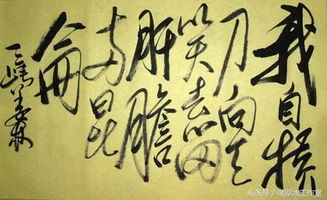 我自横
刀向天
笑去留
肝膽
两昆
侖
头条号